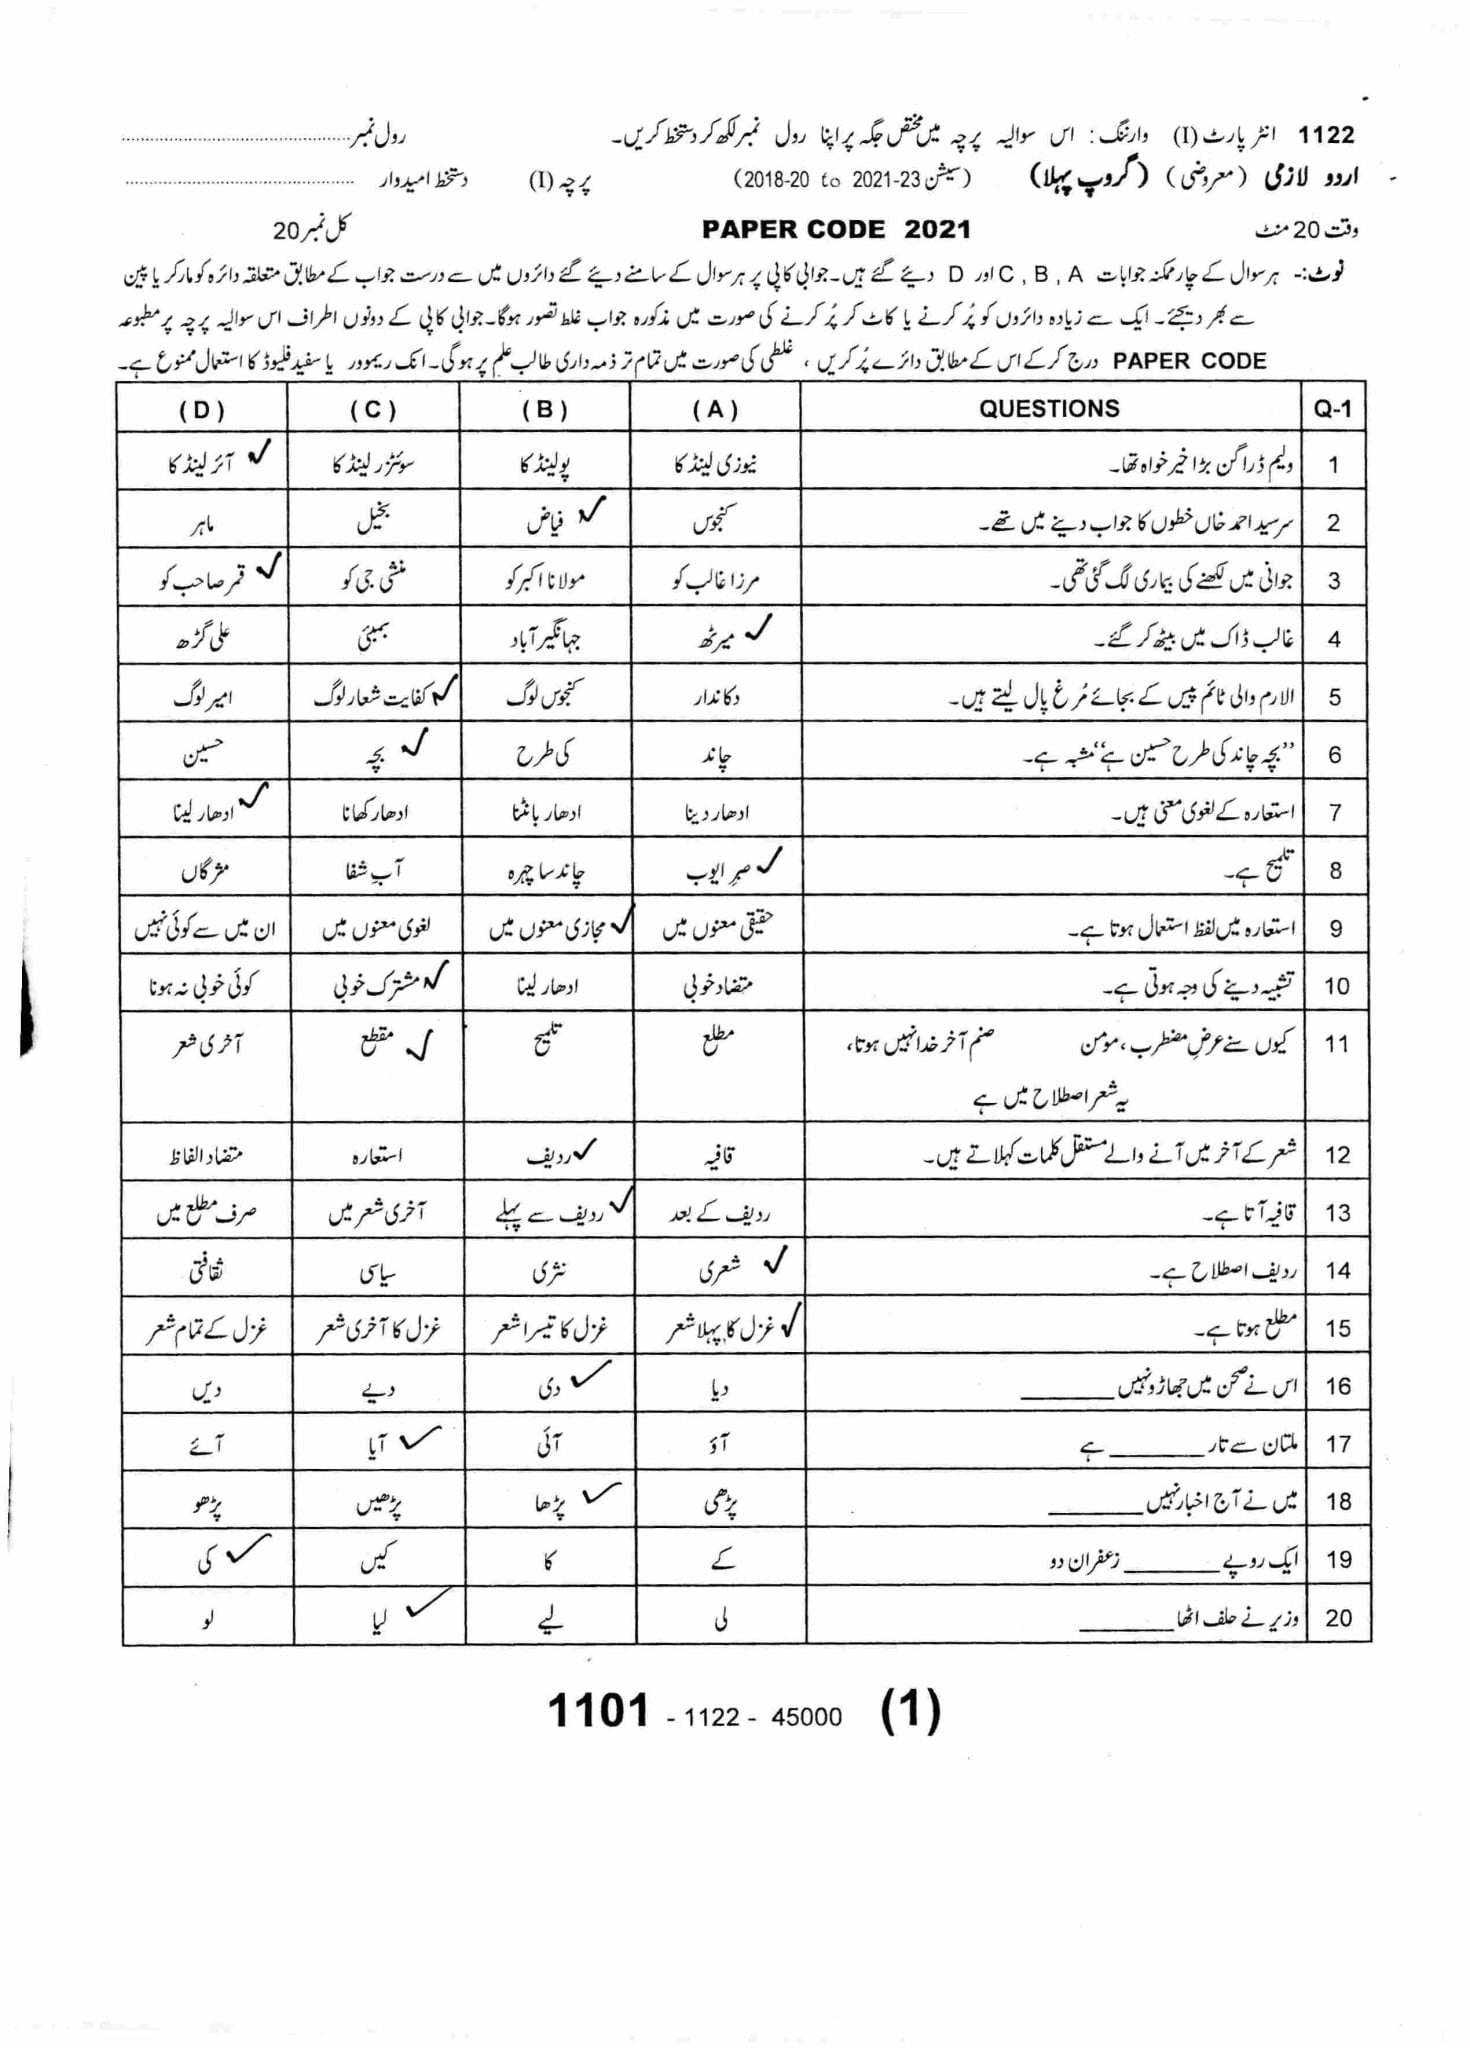 1122 انٹر پارٹ (I) وارننگ: اس سوالیہ پرچہ میں مختص جگہ پر اپنا رول نمبر لکھ کر دستخط کریں۔ رول نمبر
اردو لازمی (معروضی) (گروپ پہلا) (سیشن 2018-20 to 2021-23) پرچہ (I) دستخط امیدوار
وقت 20 منٹ PAPER CODE 2021 کل نمبر 20
نوٹ:- ہر سوال کے چار ممکنہ جوابات A , B , C اور D دیئے گئے ہیں۔ جوابی کاپی پر ہر سوال کے سامنے دیئے گئے دائروں میں سے درست جواب کے مطابق متعلقہ دائرہ کو مارکر یا پین
سے بھر دیجئے۔ ایک سے زیادہ دائروں کو پُر کرنے یا کاٹ کر پُر کرنے کی صورت میں مذکورہ جواب غلط تصور ہوگا۔ جوابی کاپی کے دونوں اطراف اس سوالیہ پرچہ پر مطبوعہ
PAPER CODE درج کر کے اس کے مطابق دائرے پُر کریں ، غلطی کی صورت میں تمام تر ذمہ داری طالب علم پر ہوگی۔ انک ریموور یا سفید فلیوڈ کا استعمال ممنوع ہے۔
Q-1 QUESTIONS (A) (B) (C) (D)
1 ولیم ڈراگن بڑا خیر خواہ تھا۔ نیوزی لینڈ کا پولینڈ کا سوئٹزر لینڈ کا آئر لینڈ کا ✓
2 سر سید احمد خاں خطوں کا جواب دینے میں تھے۔ کنجوس فیاض ✓ بخیل ماہر
3 جوانی میں لکھنے کی بیماری لگ گئی تھی۔ مرزا غالب کو مولانا اکبر کو منشی جی کو قمر صاحب کو ✓
4 غالب ڈاک میں بیٹھ کر گئے۔ میرٹھ ✓ جہانگیر آباد بمبئی علی گڑھ
5 الارم والی ٹائم پیس کے بجائے مُرغ پال لیتے ہیں۔ دکاندار کنجوس لوگ کفایت شعار لوگ ✓ امیر لوگ
6 ”بچہ چاند کی طرح حسین ہے“ مشبہ ہے۔ چاند کی طرح بچہ ✓ حسین
7 استعارہ کے لغوی معنی ہیں۔ ادھار دینا ادھار بانٹنا ادھار کھانا ادھار لینا ✓
8 تلمیح ہے۔ صبرِ ایوب ✓ چاند سا چہرہ آبِ شفا مژگاں
9 استعارہ میں لفظ استعمال ہوتا ہے۔ حقیقی معنوں میں مجازی معنوں میں ✓ لغوی معنوں میں ان میں سے کوئی نہیں
10 تشبیہ دینے کی وجہ ہوتی ہے۔ متضاد خوبی ادھار لینا مشترک خوبی ✓ کوئی خوبی نہ ہونا
11 کیوں سنے عرضِ مضطرب ، مومن صنم آخر خدا نہیں ہوتا، مطلع تلمیح مقطع ✓ آخری شعر
یہ شعر اصطلاح میں ہے
12 شعر کے آخر میں آنے والے مستقل کلمات کہلاتے ہیں۔ قافیہ ردیف ✓ استعارہ متضاد الفاظ
13 قافیہ آتا ہے۔ ردیف کے بعد ردیف سے پہلے ✓ آخری شعر میں صرف مطلع میں
14 ردیف اصطلاح ہے۔ شعری ✓ نثری سیاسی ثقافتی
15 مطلع ہوتا ہے۔ غزل کا پہلا شعر ✓ غزل کا تیسرا شعر غزل کا آخری شعر غزل کے تمام شعر
16 اس نے صحن میں جھاڑو نہیں ______ دیا دی ✓ دیے دیں
17 ملتان سے تار ______ ہے آؤ آئی آیا ✓ آئے
18 میں نے آج اخبار نہیں ______ پڑھی پڑھا ✓ پڑھیں پڑھو
19 ایک روپے ______ زعفران دو کے کا کیں کی ✓
20 وزیر نے حلف اٹھا ______ لی لیے لیا ✓ لو
1101 - 1122 - 45000 (1)